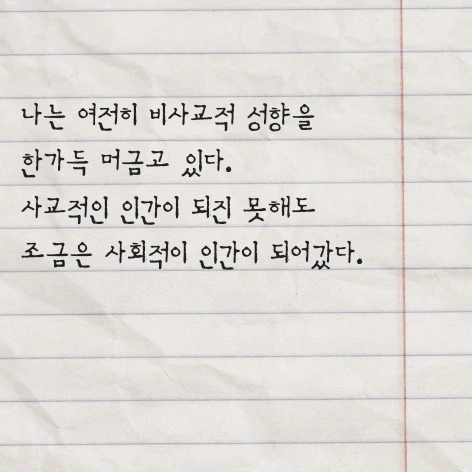 나는 여전히 비사교적 성향을
한가득 머금고 있다.
사교적인 인간이 되진 못해도
조금은 사회적이 인간이 되어갔다.